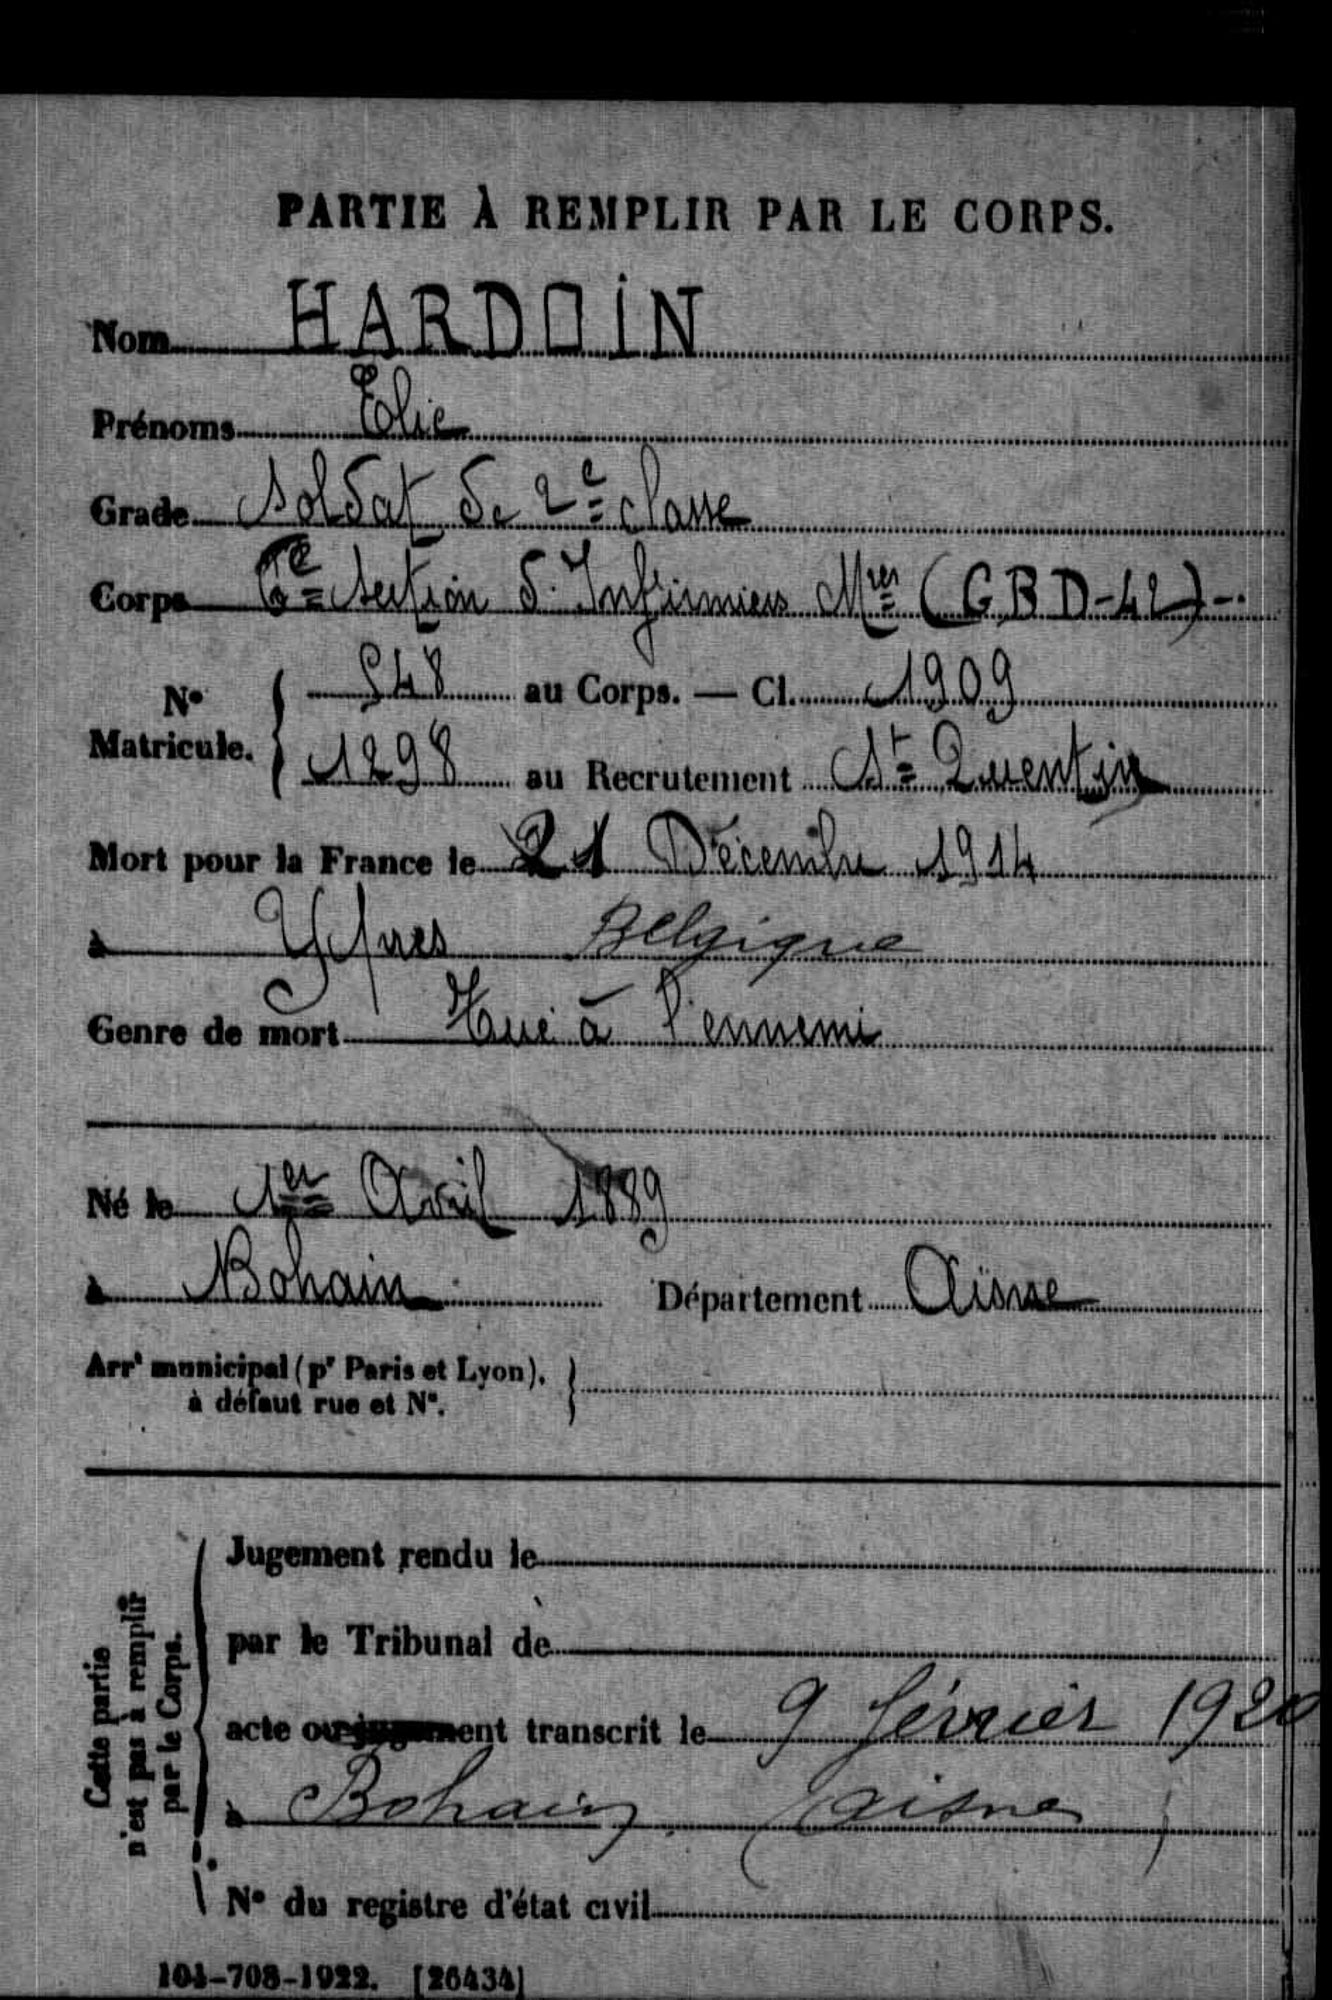 PARTIE À REMPLIR PAR LE CORPS.
Nom HARDOIN
Prénoms Elie
Grade Soldat de 2e classe
Corps 6e Section d'Infirmiers Mres (GBD-42)-.
No Matricule. { 548 au Corps. — Cl. 1909
1298 au Recrutement St Quentin
Mort pour la France le 21 Décembre 1914
à Ypres Belgique
Genre de mort Tué à l'ennemi
Né le 1er Avril 1889
à Bohain Département Aisne
Arrt municipal (pr Paris et Lyon), à défaut rue et No. }
Cette partie n'est pas à remplir par le Corps.
Jugement rendu le
par le Tribunal de
acte ou jugement transcrit le 9 février 1920
à Bohain (aisne)
No du registre d'état civil
101-708-1922. [26434]